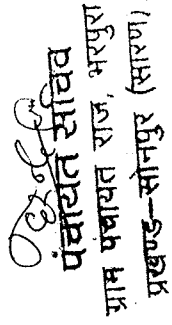 पंचायत सचिव
ग्राम पंचायत राज भरपुरा
प्रखण्ड–सोनपुर (सारण)